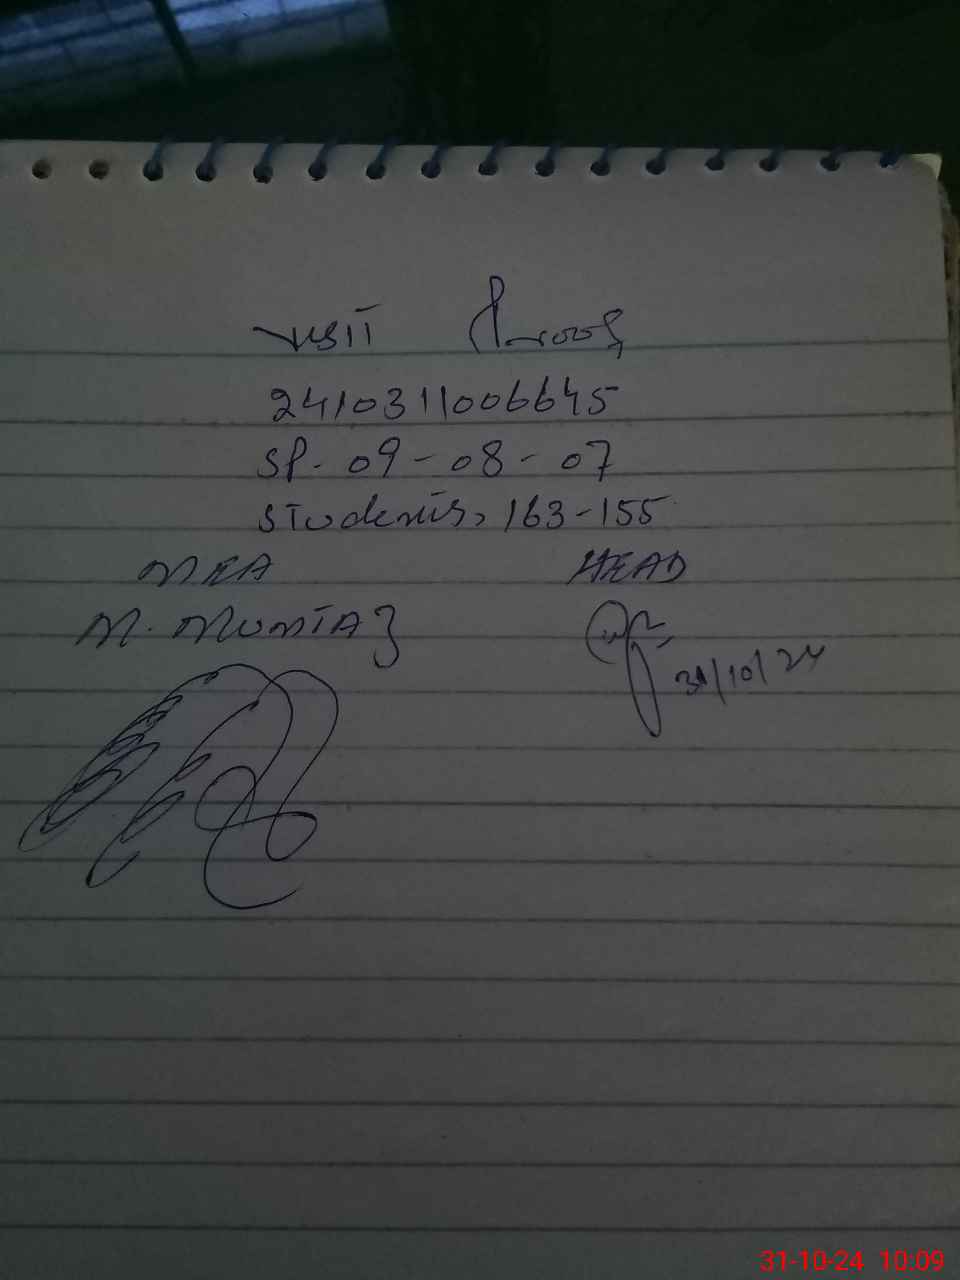 Visit Proof
2410311006645
SP- 09-08-07
Students, 163-155
MEA HEAD
M. Mumtaz
31/10/24
31-10-24 10:09